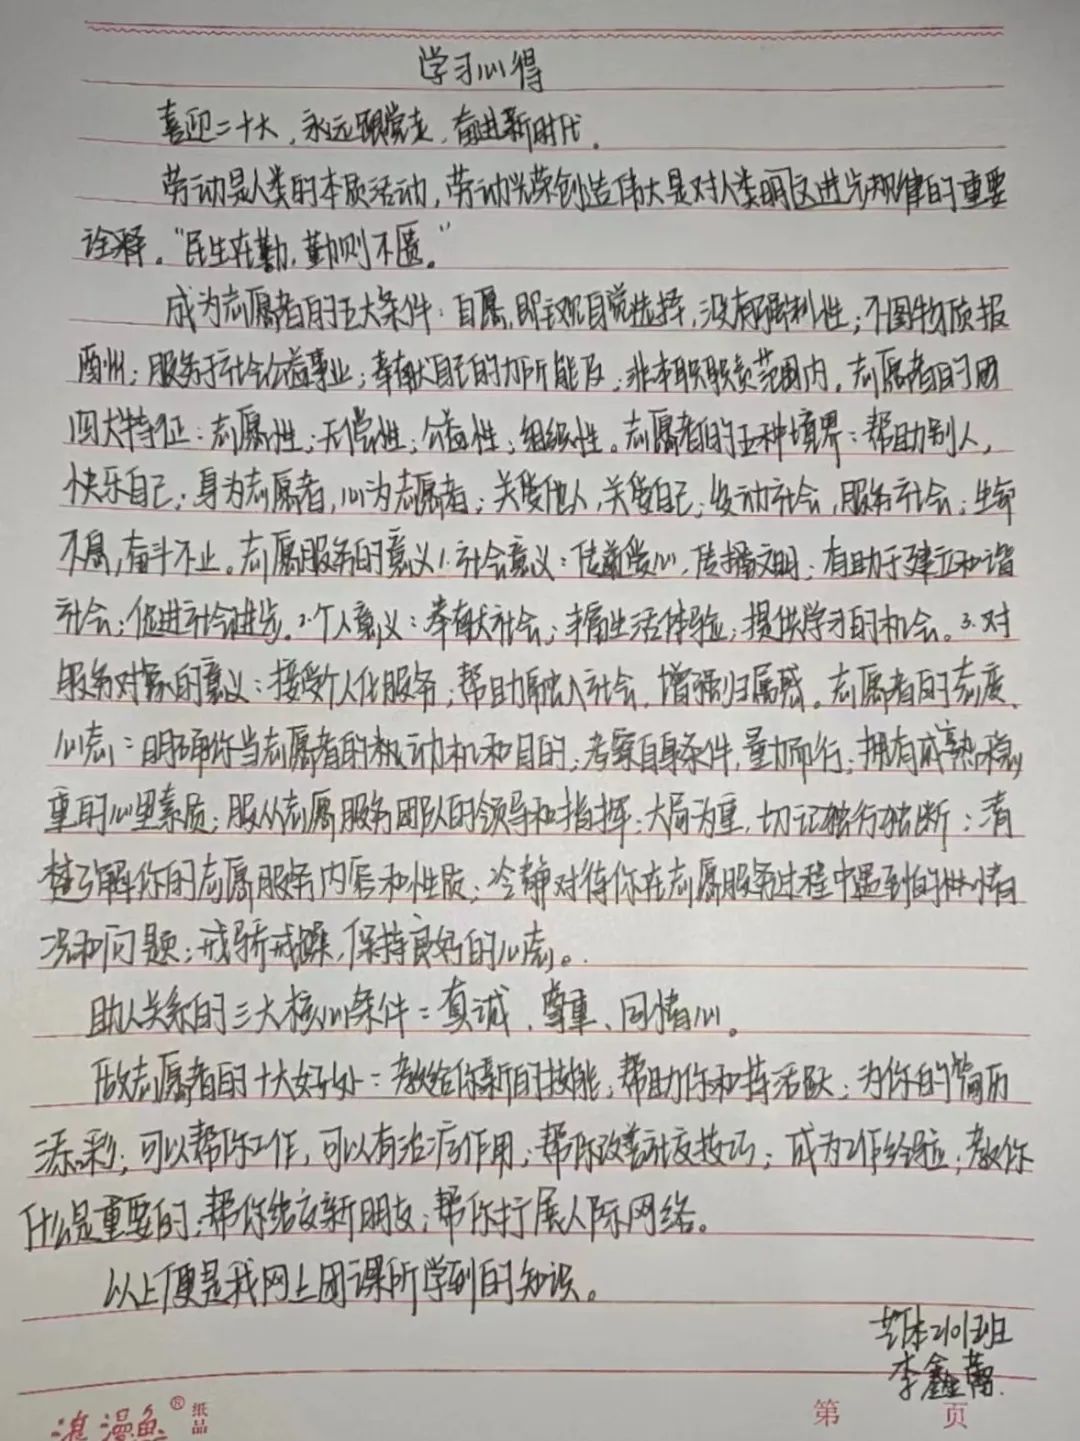 学习心得
喜迎二十大，永远跟党走，奋进新时代。
劳动是人类的本质活动，劳动光荣创造伟大是对人类明文进步规律的重要
诠释。“民生在勤，勤则不匮。”
成为志愿者的五大条件：自愿，即主观自觉选择，没有强制性；不图物质报
酬州；服务于社会公益事业；奉献自己的力所能及；非本职职责范围内。志愿者的四
四大特征：志愿性；无偿性；公益性；组织性。志愿者的五种境界：帮助别人，
快乐自己；身为志愿者，心为志愿者；关爱他人，关爱自己；发动社会，服务社会；生命
不息，奋斗不止。志愿服务的意义1.社会意义：传递爱心，传播文明；有助于建立和谐
社会；促进社会进步。2.个人意义：奉献社会；丰富生活体验；提供学习的机会。3.对
服务对象的意义：接受个人化服务；帮助融入社会，增强归属感。志愿者的态度、
心态：明确你当志愿者的动机和目的；考察自身条件，量力而行；拥有成熟稳
重的心里素质；服从志愿服务团队的领导和指挥；大局为重，切记独行独断；清
楚了解你的志愿服务内容和性质；冷静对待你在志愿服务过程中遇到的情
况和问题；戒骄戒躁，保持良好的心态。
助人关系的三大核心条件：真诚、尊重、同情心。
做志愿者的十大好处：教给你新的技能；帮助你和持活跃；为你的简历
添彩；可以帮你工作，可以有治疗作用；帮你改善社交技巧；成为工作经验；教你
什么是重要的；帮你结交新朋友；帮你扩展人际网络。
以上便是我网上团课所学到的知识。
艺本2101班
李鑫
浪漫鱼® 纸品
第 页